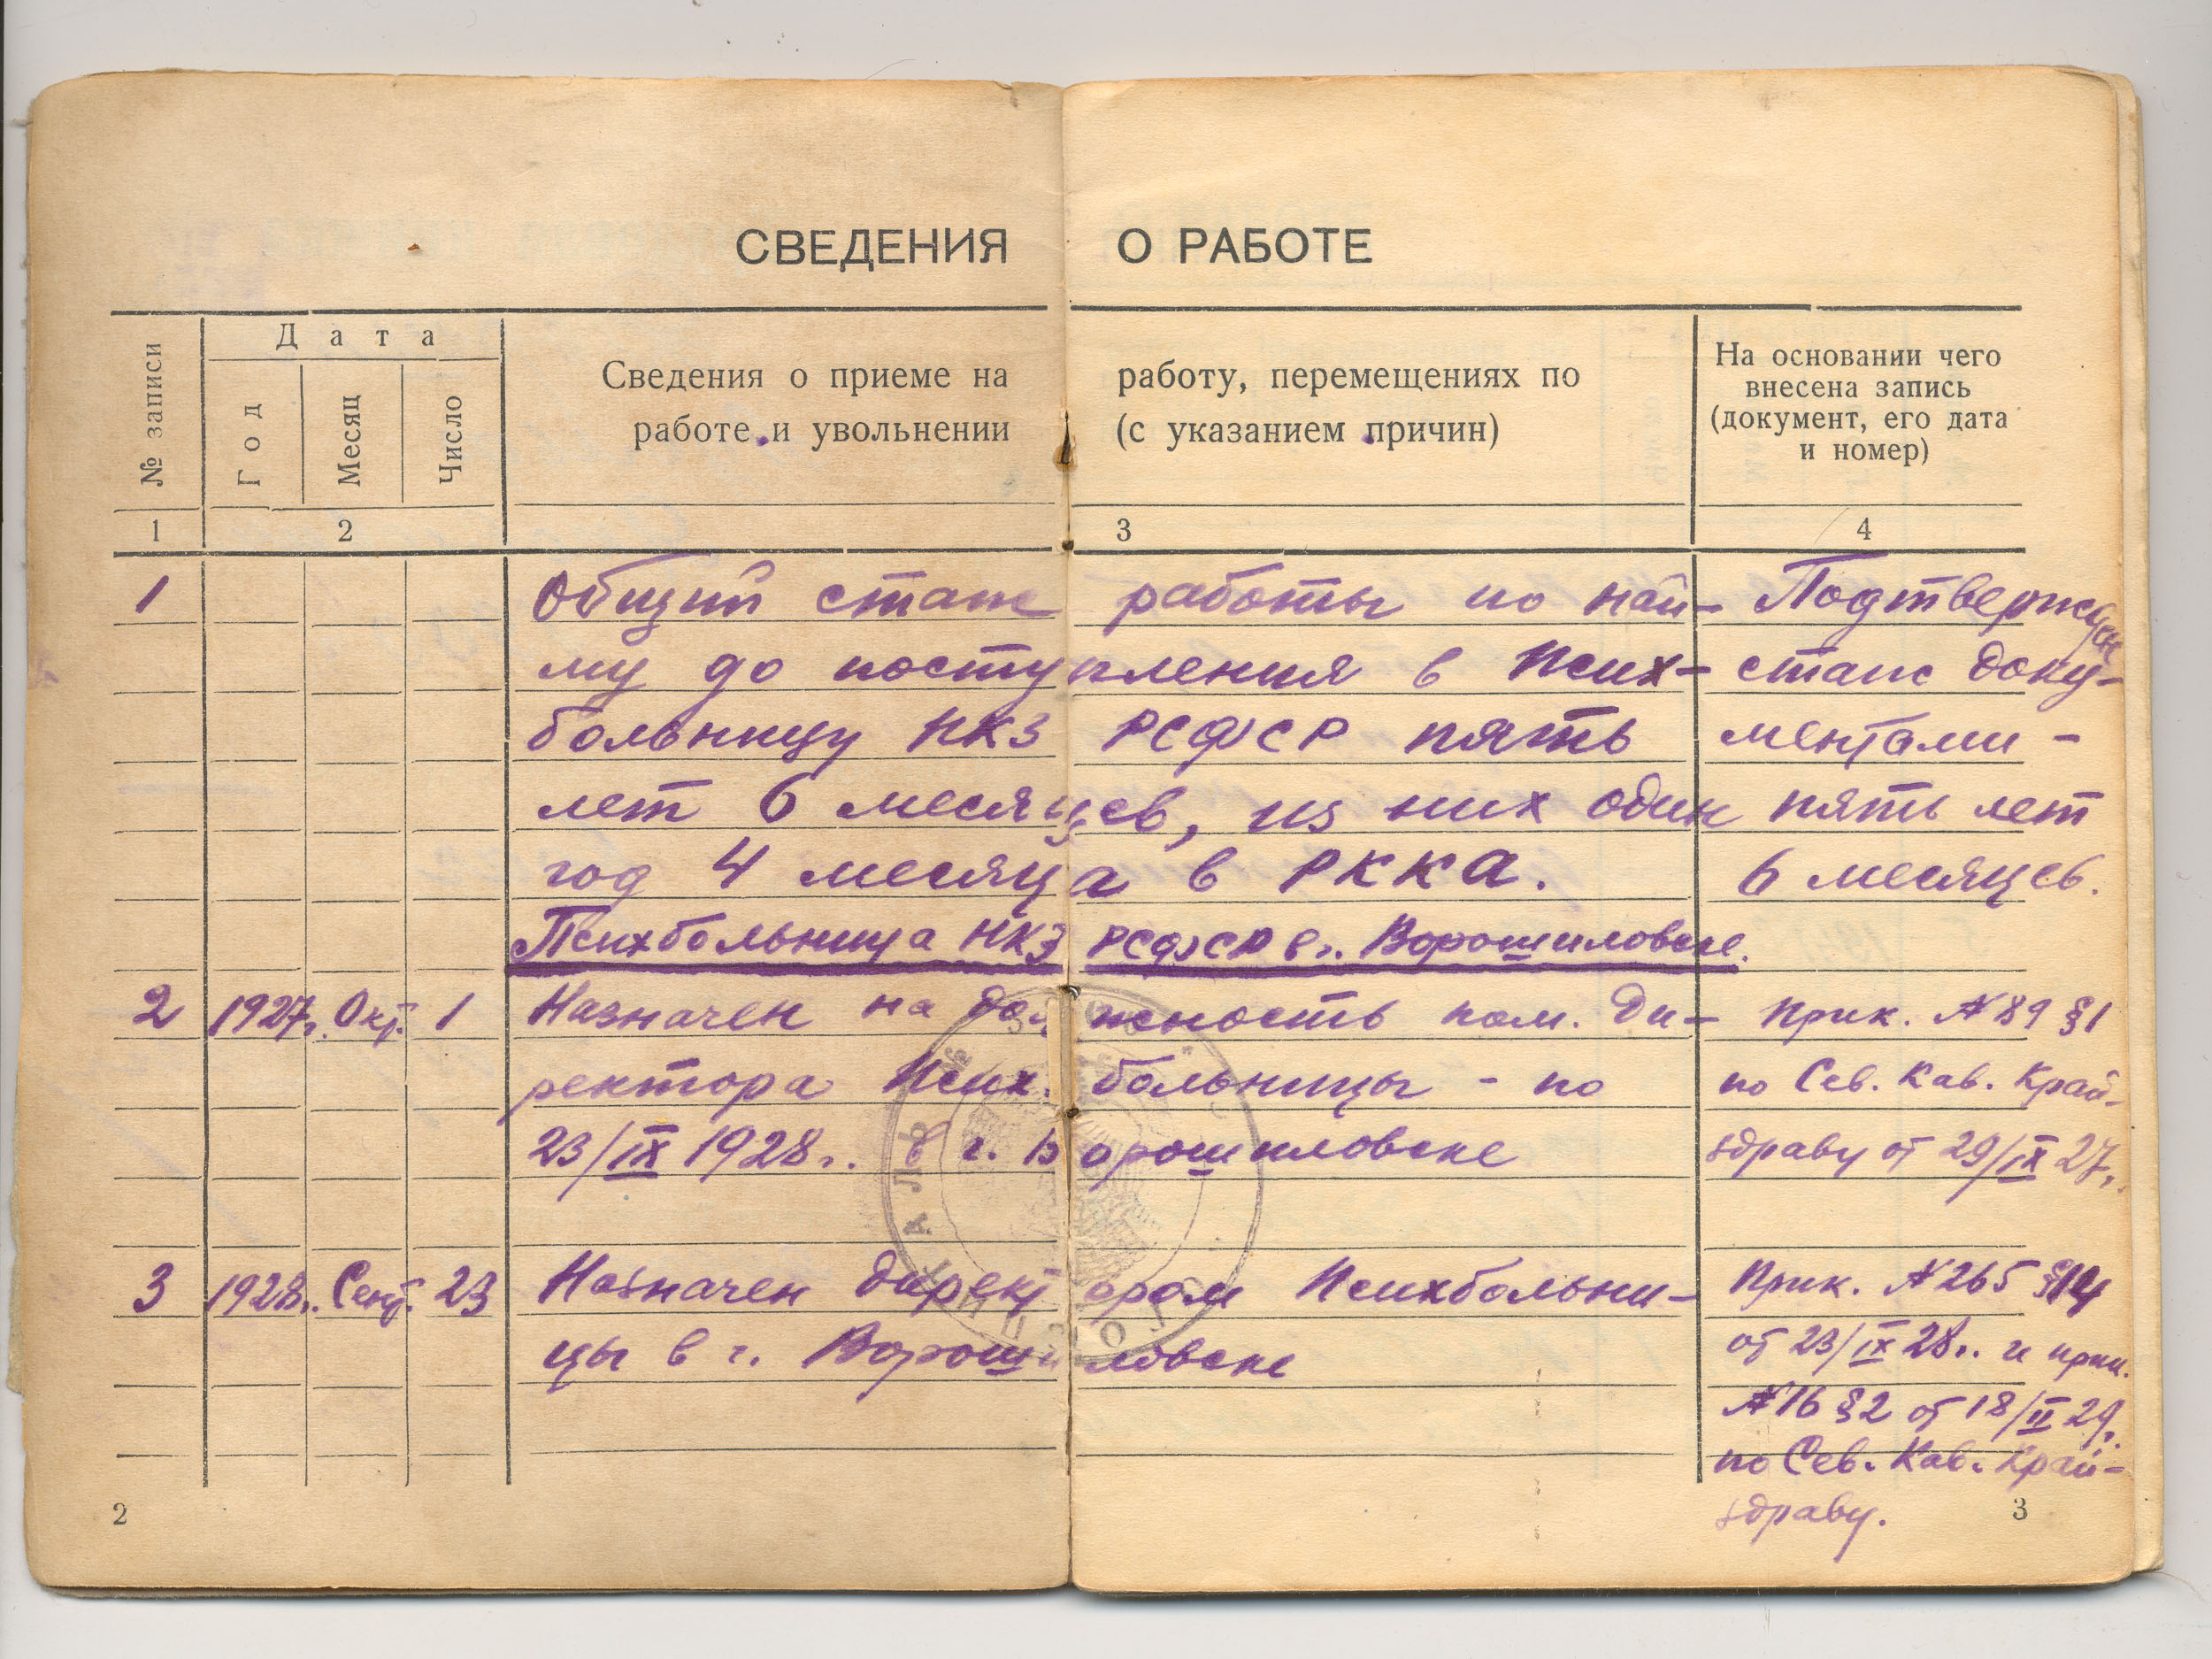 СВЕДЕНИЯ О РАБОТЕ
№ записи
Дата
Год
Месяц
Число
Сведения о приеме на работу, перемещениях по
работе и увольнении (с указанием причин)
На основании чего
внесена запись
(документ, его дата
и номер)
1 2 3 4
1 Общий стаж работы по най- Подтвержден
му до поступления в Псих- стаж доку-
больницу НКЗ РСФСР пять ментами -
лет 6 месяцев, из них один пять лет
год 4 месяца в РККА. 6 месяцев.
Психбольница НКЗ РСФСР в г. Ворошиловске.
2 1927г. Окт. 1 Назначен на должность пом. Ди- Прик. № 89 §1
ректора Псих. больницы - по по Сев. Кав. Край-
23/IX 1928г. в г. Ворошиловске здраву от 29/IX 27г.
3 1928г. Сент. 23 Назначен директором Психбольни- Прик. № 265 §14
цы в г. Ворошиловске от 23/IX 28г. и прик.
№16 §2 от 18/II 29г.
по Сев. Кав. Край-
здраву.
2 3